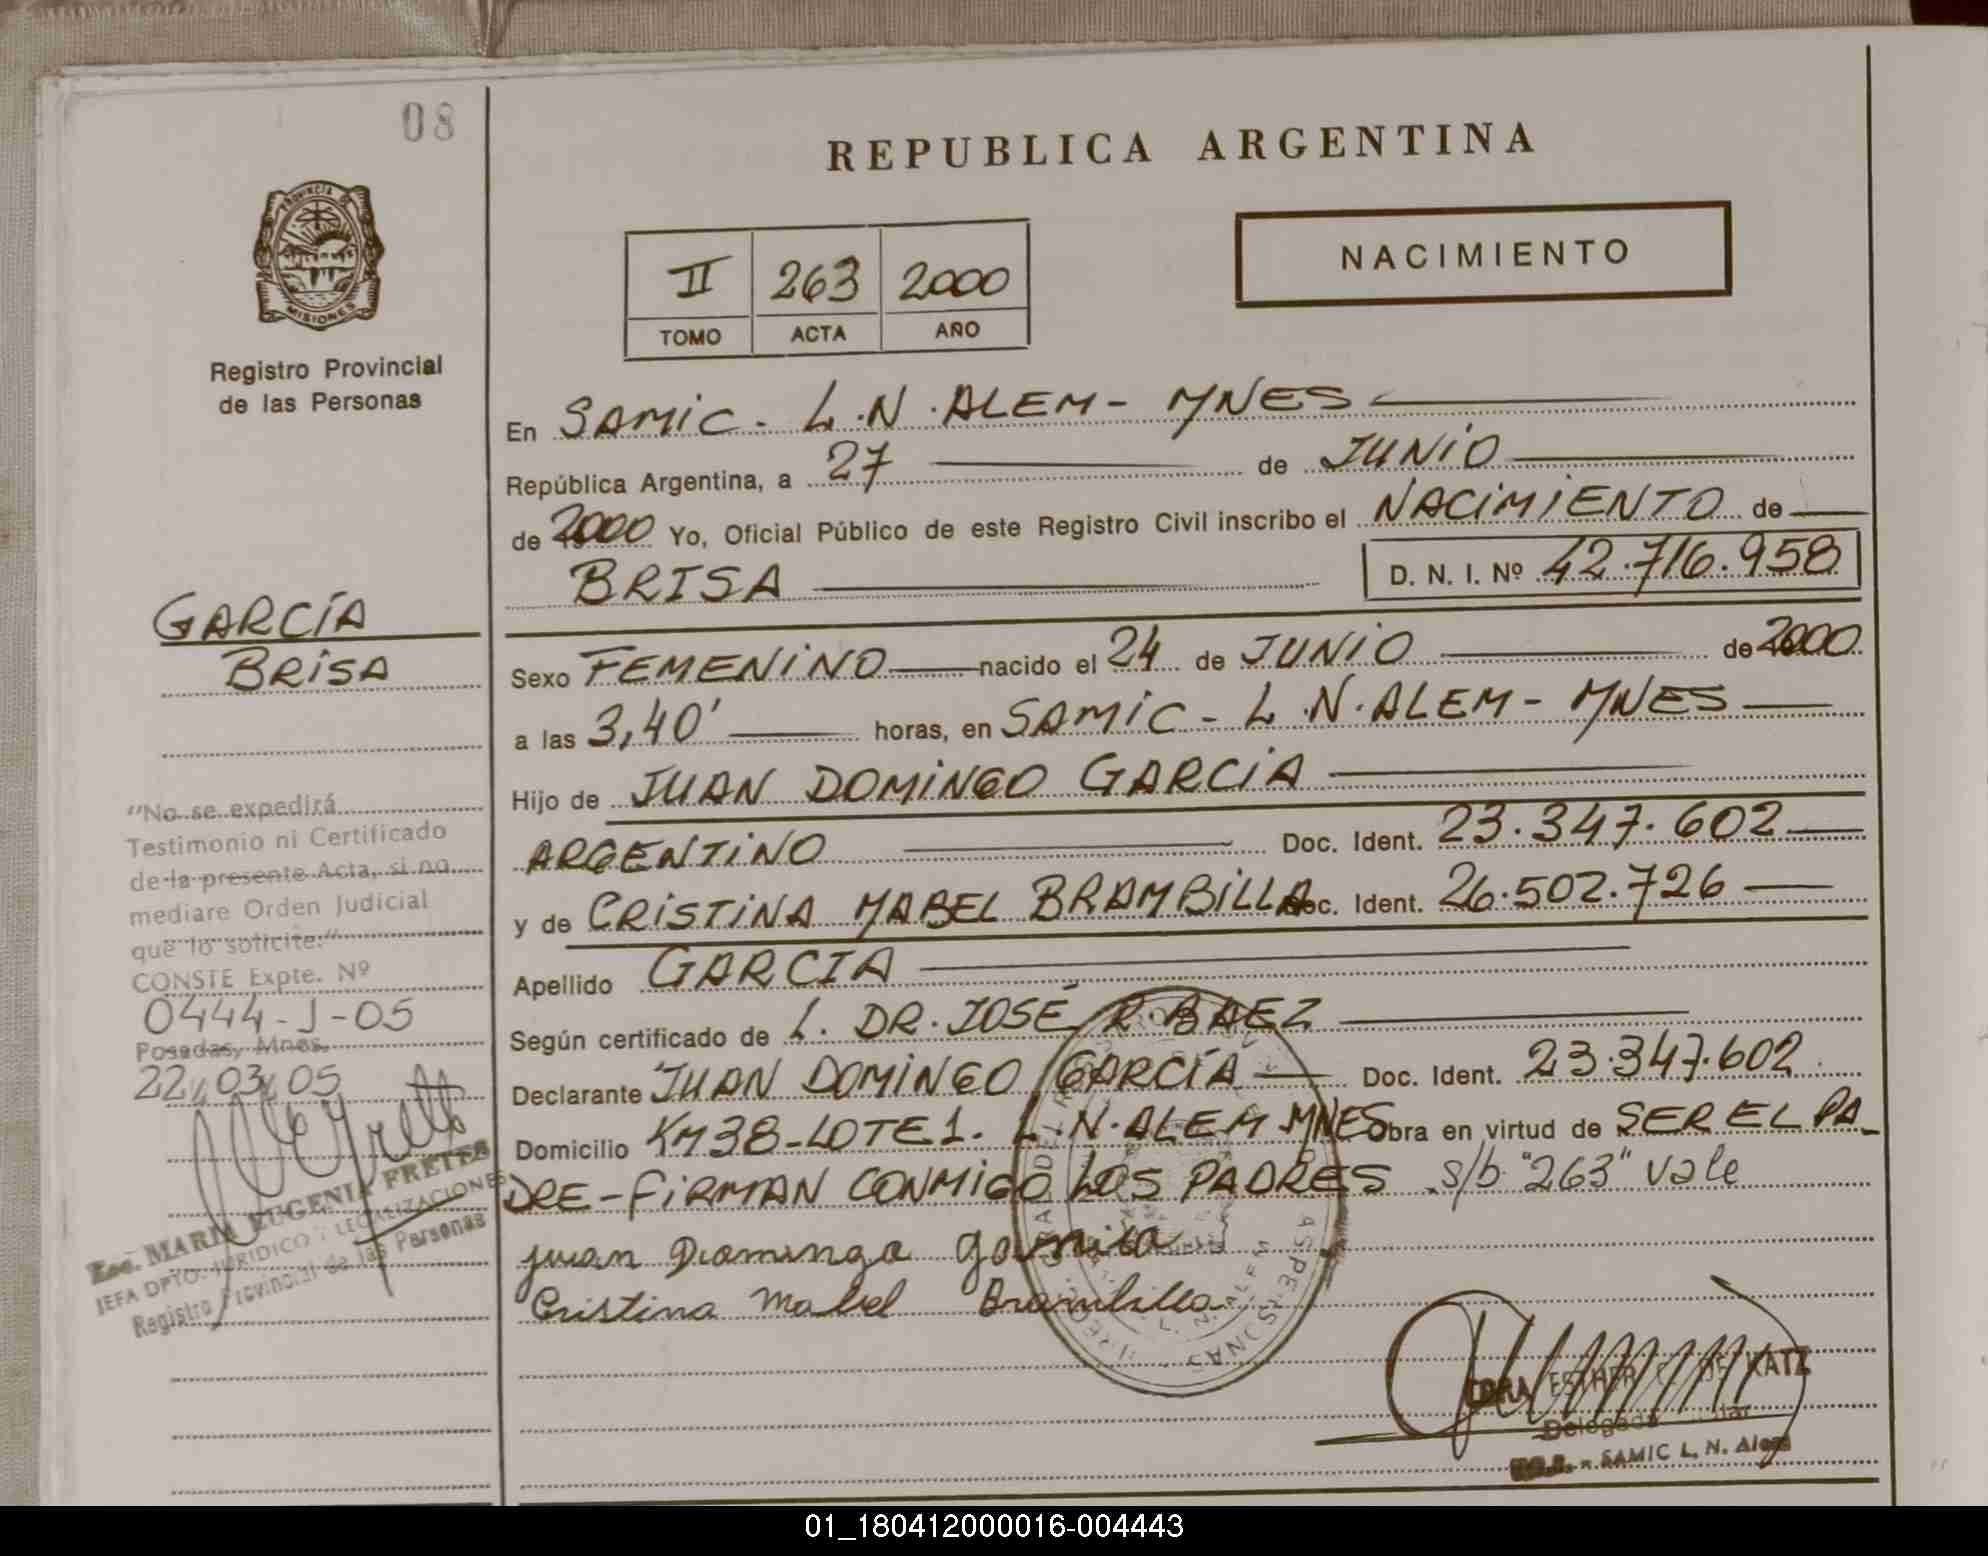 08
REPUBLICA ARGENTINA
PROVINCIA DE
MISIONES
Registro Provincial
de las Personas
NACIMIENTO
II 263 2000
TOMO ACTA AÑO
En SAMIC - L.N. ALEM - MNES
República Argentina, a 27 de JUNIO
de 2000 Yo, Oficial Público de este Registro Civil inscribo el NACIMIENTO de
BRISA D. N. I. Nº 42.716.958
GARCÍA
BRISA
Sexo FEMENINO nacido el 24 de JUNIO de 2000
a las 3,40' horas, en SAMIC - L.N. ALEM - MNES
Hijo de JUAN DOMINGO GARCIA
ARGENTINO Doc. Ident. 23.347.602
y de CRISTINA MABEL BRAMBILLA Doc. Ident. 26.502.726
Apellido GARCIA
Según certificado de L. DR. JOSÉ R. BAEZ
Declarante JUAN DOMINGO GARCÍA Doc. Ident. 23.347.602
Domicilio KM38-LOTE 1. L.N. ALEM MNES Obra en virtud de SER EL PA-
DRE - FIRMAN CONMIGO LOS PADRES s/b "263" vale
Juan Domingo Garcia
Cristina Mabel Brambilla
"No se expedirá
Testimonio ni Certificado
de la presente Acta, si no
mediare Orden Judicial
que lo solicite."
CONSTE Expte. Nº
0444-J-05
Posadas, Mnes.
22/03/05
Esc. MARIA EUGENIA FRETES
JEFA DPTO. JURIDICO Y LEGALIZACIONES
Registro Provincial de las Personas
DORA ESTHER C. DE KATZ
Delegada Titular
SAMIC L. N. Alem
01_180412000016-004443